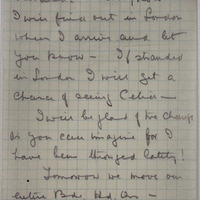 I will find out in London
when I arrive and let
you know — If stranded
in London I will get a
chance of seeing Celia —
I will be glad of the change
as you can imagine for I
have been thronged lately!
Tomorrow we move our
entire Bde Hd Qrs —